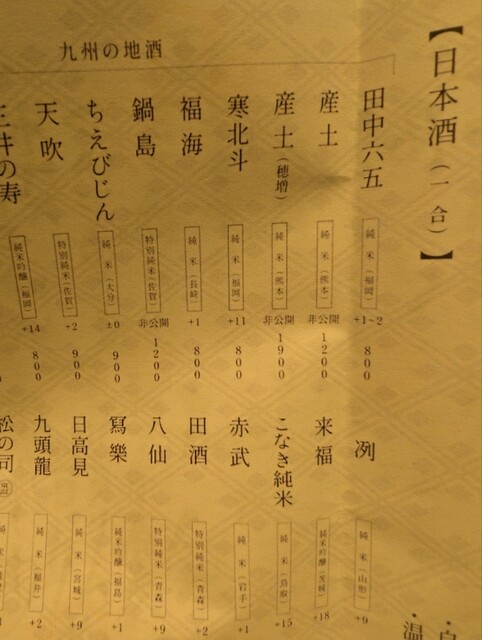 【日本酒（一合）】
九州の地酒
田中六五 純米（福岡） +1~2 800
産土 純米（熊本） 非公開 1200
産土（穂増） 純米（熊本） 非公開 1900
寒北斗 純米（福岡） +11 800
福海 純米（長崎） +1 800
鍋島 特別純米（佐賀） 非公開 1200
ちえびじん 純米（大分） ±0 900
天吹 特別純米（佐賀） +2 900
三井の寿 純米吟醸（福岡） +14 800
冽 純米（山形） +9
来福 純米吟醸（茨城） +18
こなき純米 純米（鳥取） +15
赤武 純米（岩手） +1
田酒 特別純米（青森） +2
八仙 特別純米（青森） +9
冩樂 純米吟醸（福島） +1
日高見 純米（宮城） +9
九頭龍 純米（福井） +2
松の司